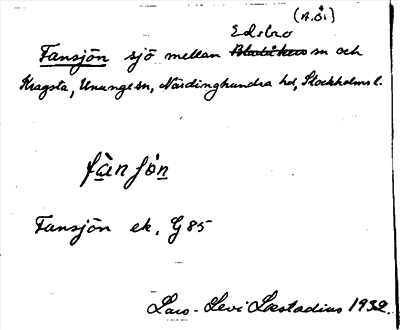 (n.ö.)
Edsbro
Fansjön sjö mellan sn och
Kragsta, Ununge sn, Närdinghundra hd, Stockholms l.
fànſön
Fansjön ek. G 85
Lars-Levi Læstadius 1932.